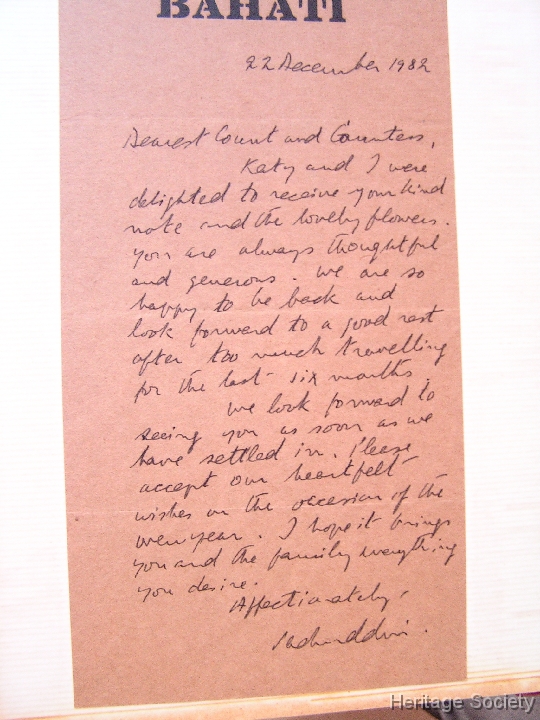 BAHATI
22 December 1982
Dearest Count and Countess,
Katy and I were
delighted to receive your kind
note and the lovely flowers.
You are always thoughtful
and generous. We are so
happy to be back and
look forward to a good rest
after too much travelling
for the last six months.
We look forward to
seeing you as soon as we
have settled in. Please
accept our heartfelt
wishes on the occasion of the
new year. I hope it brings
you and the family everything
you desire.
Affectionately,
Sadruddin.
Heritage Society